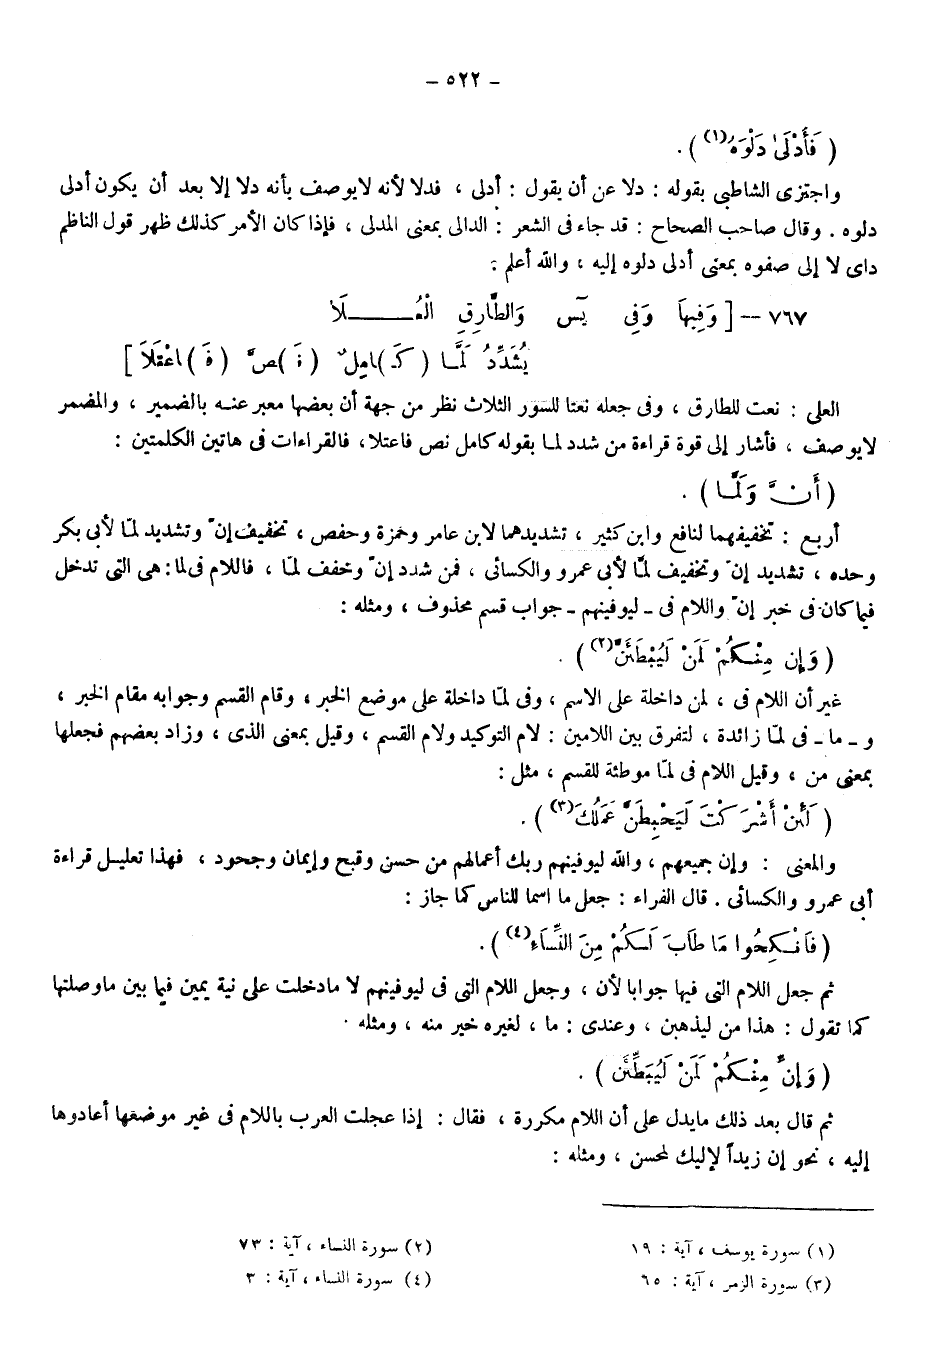 – ٥٢٢ –
( فَأَدْلَىٰ دَلْوَهُ(١) ) .
واجتزى الشاطبي بقوله : دلا عن أن يقول : أدلى ، فدلا لأنه لايوصف بأنه دلا إلا بعد أن يكون أدلى
دلوه . وقال صاحب الصحاح : قد جاء فى الشعر : الدالى بمعنى المدلى ، فإذا كان الأمر كذلك ظهر قول الناظم
داى لا إلى صفوه بمعنى أدلى دلوه إليه ، والله أعلم :
٧٦٧ – [ وَفِيهَا وَفِى يَس وَالطَّارِقِ الْعُـــــلَا
يُشَدِّدُ لَمَّـا ( كَـ )امِلٌ ( نَـ )صَّ ( فَـ )اعْتَلَا ]
العلى : نعت للطارق ، وفى جعله نعتا للسور الثلاث نظر من جهة أن بعضها معبر عنـه بالضمير ، والمضمر
لايوصف ، فأشار إلى قوة قراءة من شدد لمـا بقوله كامل نص فاعتلا، فالقراءات فى هاتين الكلمتين :
( أَنـَّ وَلَمَّـا ) .
أربع : تخفيفهما لنافع وابن كثير ، تشديدهما لابن عامر وحمزة وحفص ، تخفيف إنّ وتشديد لمّا لأبى بكر
وحده ، تشديد إنّ وتخفيف لمّا لأبى عمرو والكسائى . فمن شدد إنّ وخفف لمّا ، فاللام فى لما : هى التى تدخل
فيما كان فى خبر إنّ واللام فى ـ ليوفينهم ـ جواب قسم محذوف ، ومثله :
( وَإِن مِنْـكُمْ لَمَنْ لَيُبْطَئَنَّ(٢) ) .
غير أن اللام فى ، لمن داخلة على الاسم ، وفى لمّا داخلة على موضع الخبر ، وقام القسم وجوابه مقام الخبر ،
و ـ ما ـ فى لمّا زائدة ، لتفرق بين اللامين : لام التوكيد ولام القسم ، وقيل بمعنى الذى ، وزاد بعضهم فجعلها
بمعنى من ، وقيل اللام فى لمّا موطئة للقسم ، مثل :
( لَئِنْ أَشْرَكْتَ لَيَحْبِطَنَّ عَمَلُكَ(٣) ) .
والمعنى : وإن جميعهم ، والله ليوفينهم ربك أعمالهم من حسن وقبح وإيمان وجحود ، فهذا تعليـل قراءة
أبى عمرو والكسائى . قال الفراء : جعل ما اسما للناس كما جاز :
( فَانْـكِحُوا مَا طَابَ لَـكُمْ مِنَ النِّسَاءِ(٤) ) .
ثم جعل اللام التى فيها جوابا لأن ، وجعل اللام التى فى ليوفينهم لا مادخلت على نية يمين فيما بين ماوصلتها
كما تقول : هذا من ليذهبن ، وعندى : ما ، لغيره خير منه ، ومثله .
( وَإِنَّ مِنْـكُمْ لَمَنْ لَيُبَطِّئَن ) .
ثم قال بعد ذلك مايدل على أن اللام مكررة ، فقال : إذا عجلت العرب باللام فى غير موضعها أعادوها
إليه ، نحو إن زيداً لإليك لمحسن ، ومثله :
(١) سورة يوسف ، آية : ١٩ (٢) سورة النساء ، آية : ٧٣
(٣) سورة الزمر ، آية : ٦٥ (٤) سورة النساء ، آية : ٣